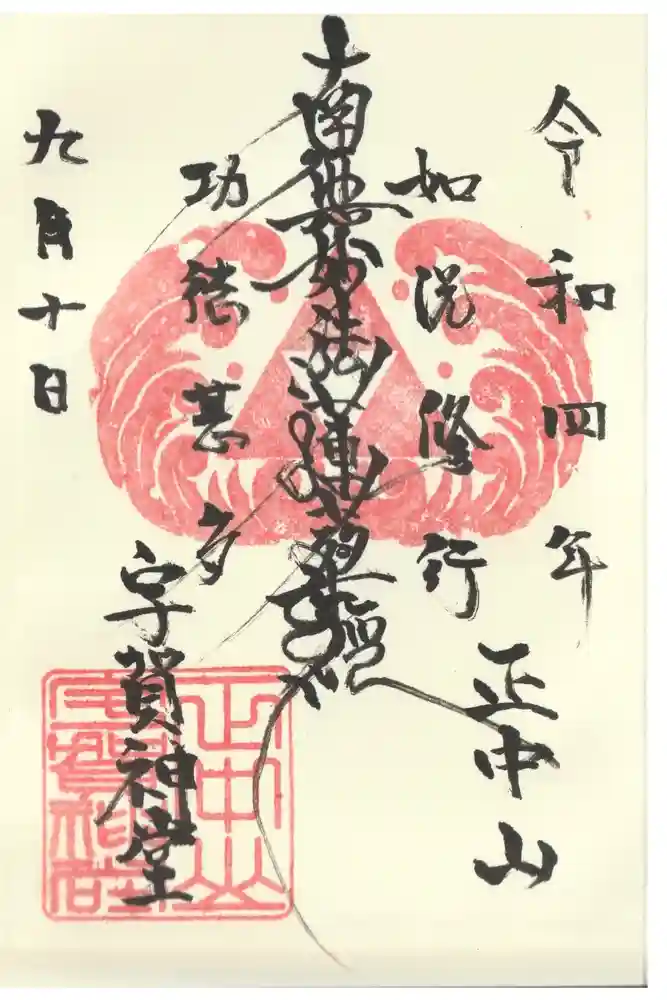 令和四年
正中山
如説修行
南無妙法蓮華経
功徳甚多
宇賀神堂
九月十日
正中山